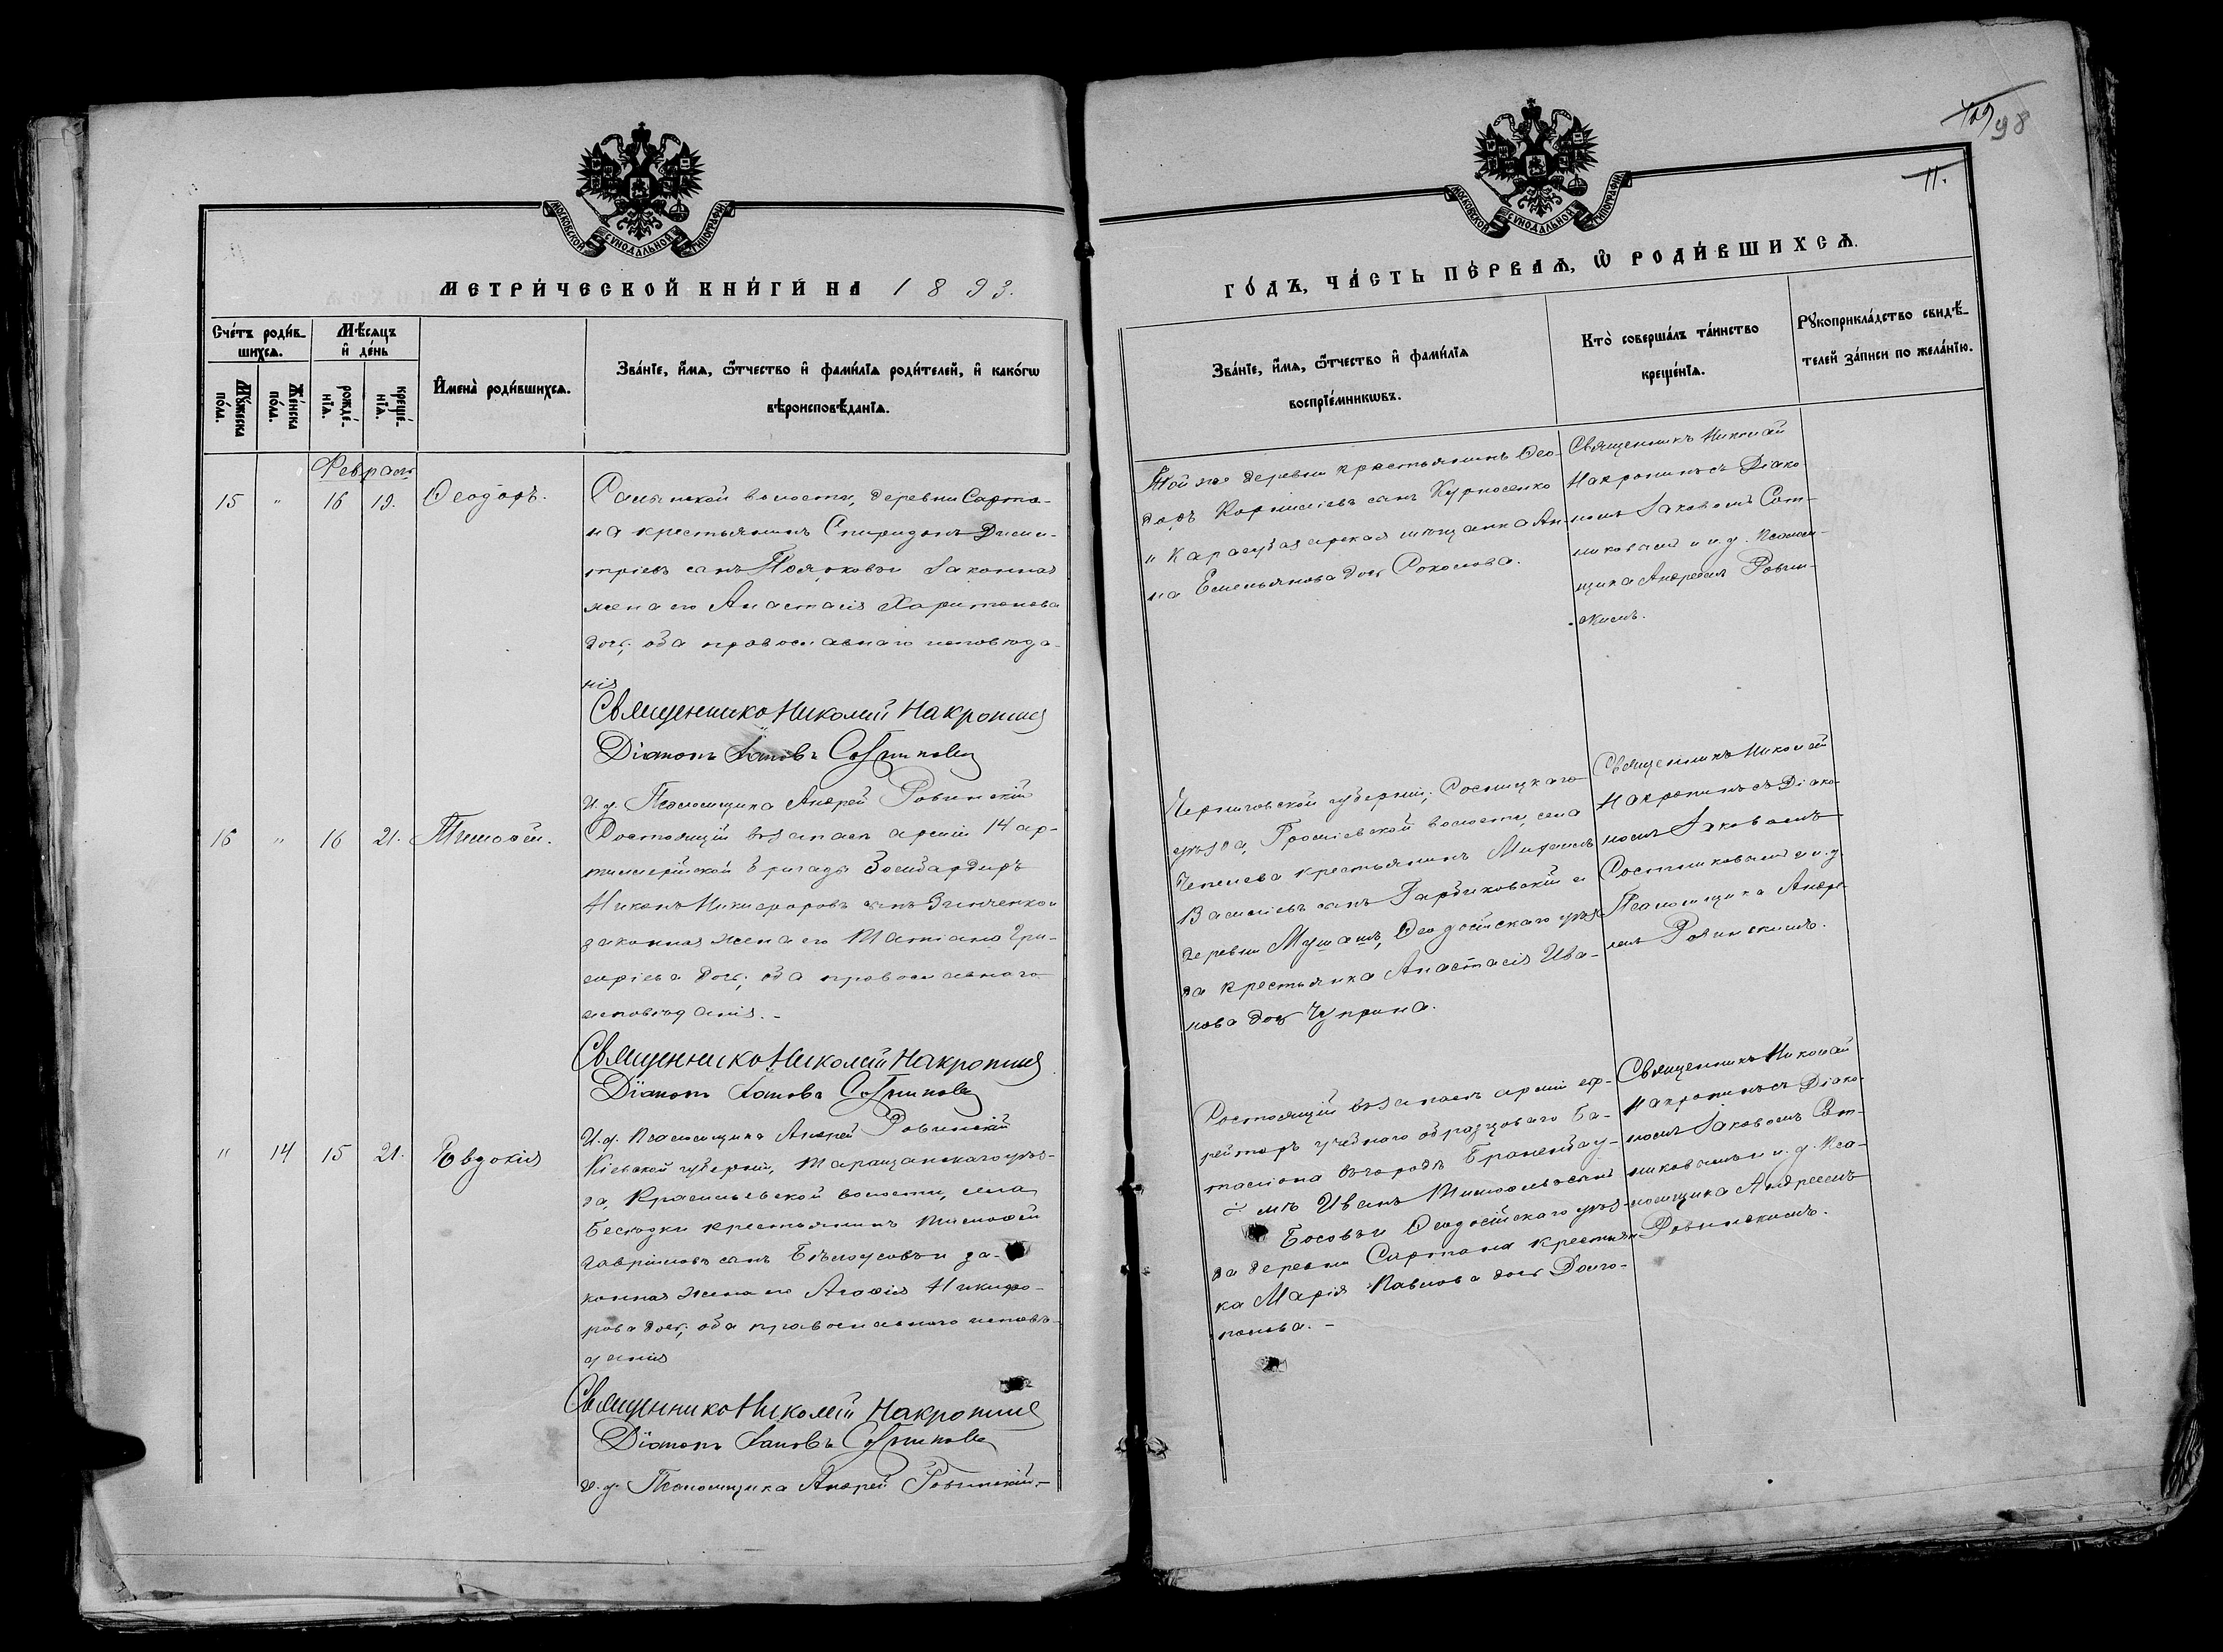 МОСКОВСКОЙ СУНОДАЛЬНОЙ ТИПОГРАФІИ
МЕТРИ́ЧЕСКОЙ КНИ́ГИ НА 1893.
Сче́тъ роди́в-
шихсѧ.
Мѣ́сѧцъ
и҆ де́нь
Мꙋ́жеска
по́ла.
Же́нска
по́ла.
рожде́-
нїѧ.
креще́-
нїѧ.
И҆мена̀ роди́вшихсѧ.
Зва́нїе, и҆́мѧ, ѻ҆́тчество и҆ фами́лїѧ роди́телей, и҆ како́гѡ
вѣроисповѣ́данїѧ.
Февраль
15 " 16 19. Ѳеодоръ.
волости, деревни Сарта-
на крестьянинъ Спиридонъ Дими-
тріевъ сынъ и законная
жена его Анастасія Харитонова
дочь; оба православнаго исповѣда-
нія
Священникъ Николай Накропинъ
Діаконъ Іаковъ Сотниковъ
И. д. Псаломщика Андрей Ровинскій
16 " 16 21. Тимоѳей.
Состоящій въ запасѣ арміи 14 ар-
тиллерійской бригады бомбардиръ
Никонъ Никифоровъ сынъ Зинченко и
законная жена его Татіана Гри-
горіева дочь; оба православнаго
исповѣданія. -
Священникъ Николай Накропинъ
Діаконъ Іаковъ Сотниковъ
И. д. Псаломщика Андрей Ровинскій
" 14 15 21. Евдокія
Кіевской губерніи, Таращанскаго уѣз-
да, волости, села
Бесѣдки крестьянинъ Тимоѳей
Гавріиловъ сынъ Бѣлоусовъ и за-
конная жена его Агаѳія Никифо-
рова дочь; оба православнаго исповѣ-
данія
Священникъ Николай Накропинъ
Діаконъ Іаковъ Сотниковъ
И. д. Псаломщика Андрей Ровинскій. -
98
11.
МОСКОВСКОЙ СУНОДАЛЬНОЙ ТИПОГРАФІИ
ГО́ДЪ, ЧА́СТЬ ПЕ́РВАѦ, Ѡ҆ РОДИ́ВШИХСѦ.
Зва́нїе, и҆́мѧ, ѻ҆́тчество и҆ фами́лїѧ
воспрїе́мникѡвъ.
Кто̀ соверша́лъ та́инство
креще́нїѧ.
Рꙋкоприкла́дство свидѣ́-
телей за́писи по жела́нїю.
Той же деревни крестьянинъ Ѳео-
доръ Корниліевъ сынъ Курносенко
и Карасубазарская мѣщанка Ан-
на Емельянова дочь Соколова.
Священникъ Николай
Накропинъ съ Діако-
номъ Іаковомъ Сот-
никовымъ и и. д. Псалом-
щика Андреемъ Ровин-
скимъ.
Черниговской губерніи, Сосницкаго
уѣзда, волости, села
крестьянинъ Михаилъ
Василіевъ сынъ Гарбиковскій и
деревни Мушашъ, Ѳеодосійскаго уѣз-
да крестьянка Анастасія Ива-
нова дочь Чуприна.
Священникъ Николай
Накропинъ съ Діако-
номъ Іаковомъ
Сотниковымъ и и. д.
Псаломщика Андре-
емъ Ровинскимъ.
Состоящій въ запасѣ арміи еф-
рейторъ учебнаго образцоваго ба-
таліона въ городѣ Ораненбау-
мѣ Иванъ Тимоѳеевъ сынъ
Босовъ и Ѳеодосійскаго уѣз-
да деревни Сартана крестьян-
ка Марія Павлова дочь Долго-
полова. -
Священникъ Николай
Накропинъ съ Діако-
номъ Іаковомъ Сот-
никовымъ и и. д. Пса-
ломщика Андреемъ
Ровинскимъ.